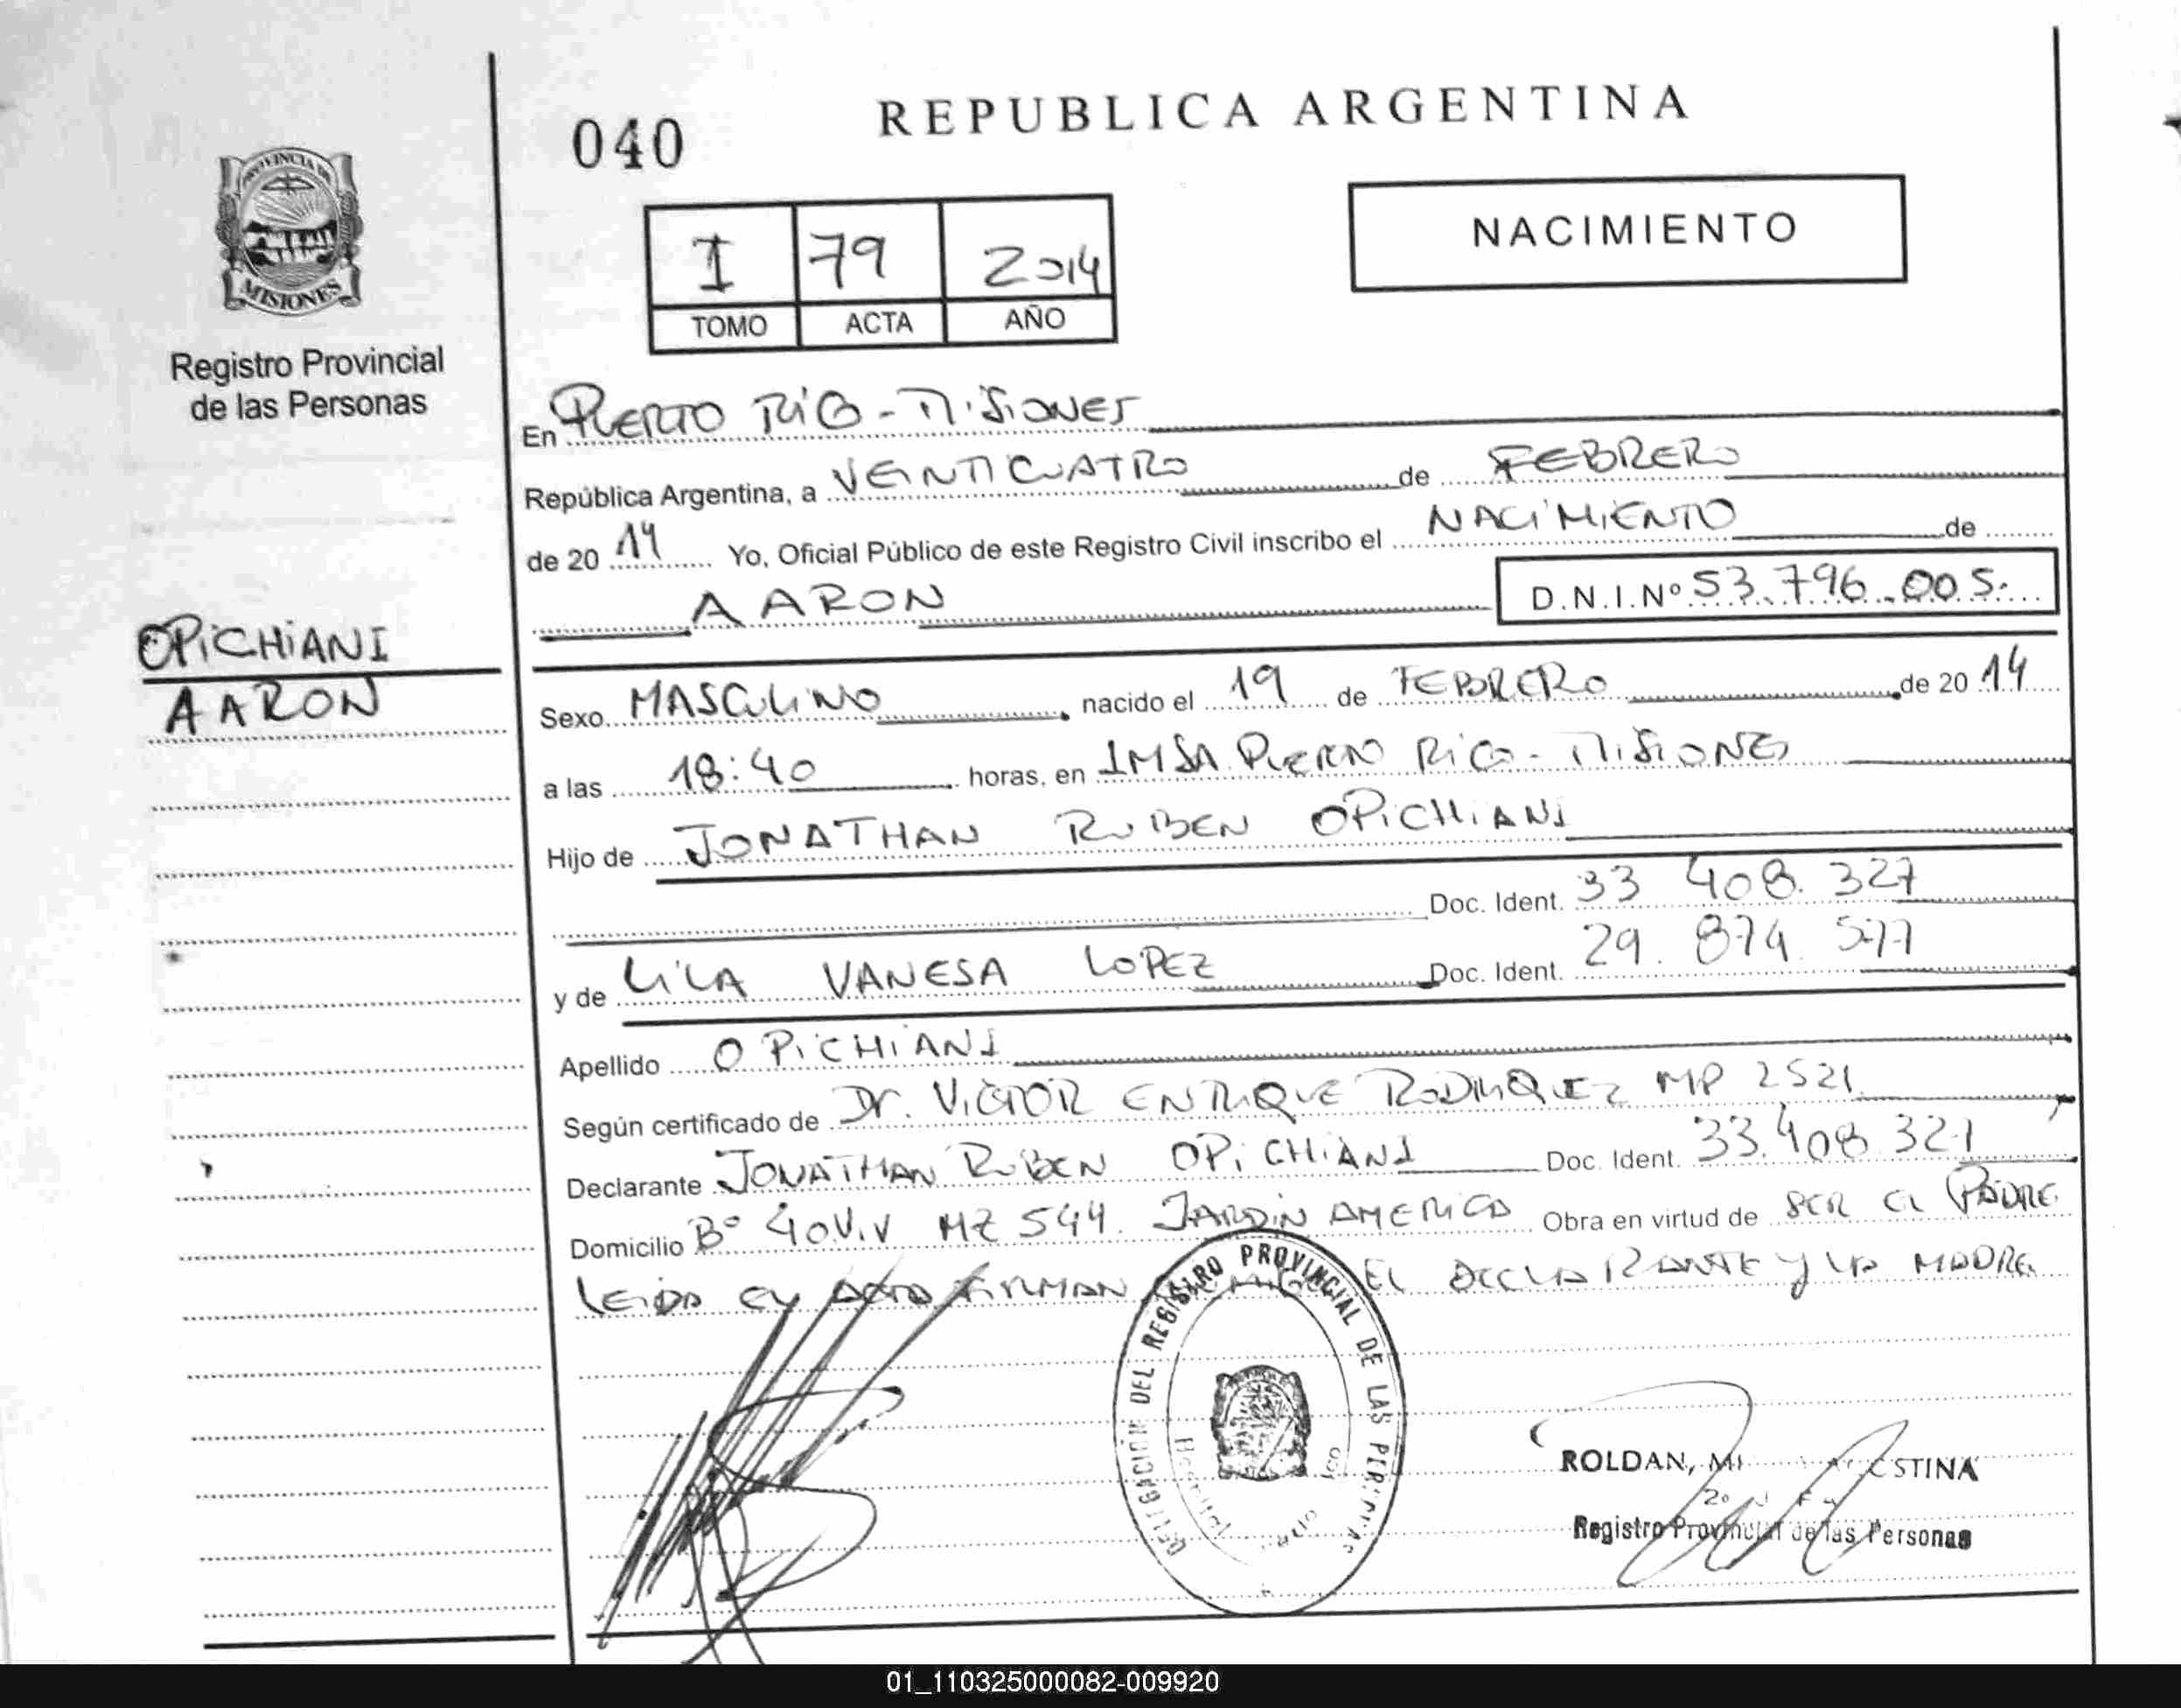 REPUBLICA ARGENTINA
040
NACIMIENTO
PROVINCIA DE
MISIONES
I 79 2014
TOMO ACTA AÑO
Registro Provincial
de las Personas
En PUERTO RICO - MISIONES
República Argentina, a VEINTICUATRO de FEBRERO
de 20 14 Yo, Oficial Público de este Registro Civil inscribo el NACIMIENTO de
AARON D.N.I.Nº 53.796.005.
OPICHIANI
AARON
Sexo MASCULINO nacido el 19 de FEBRERO de 20 14
a las 18:40 horas, en IMSA PUERTO RICO - MISIONES
Hijo de JONATHAN RUBEN OPICHIANI
Doc. Ident. 33 408. 327
y de LILA VANESA LOPEZ Doc. Ident. 29. 874 577
Apellido OPICHIANI
Según certificado de Dr. VICTOR ENRIQUE RODRIGUEZ MP 2521
Declarante JONATHAN RUBEN OPICHIANI Doc. Ident. 33.408 327
Domicilio Bº 40 Viv MZ 544. JARDIN AMERICA Obra en virtud de SER EL PADRE
LEIDA EL ACTA FIRMAN EL DECLARANTE y LA MADRE
DELEGACION DEL REGISTRO PROVINCIAL DE LAS PERSONAS
ROLDAN,
Registro Provincial de las Personas
01_110325000082-009920